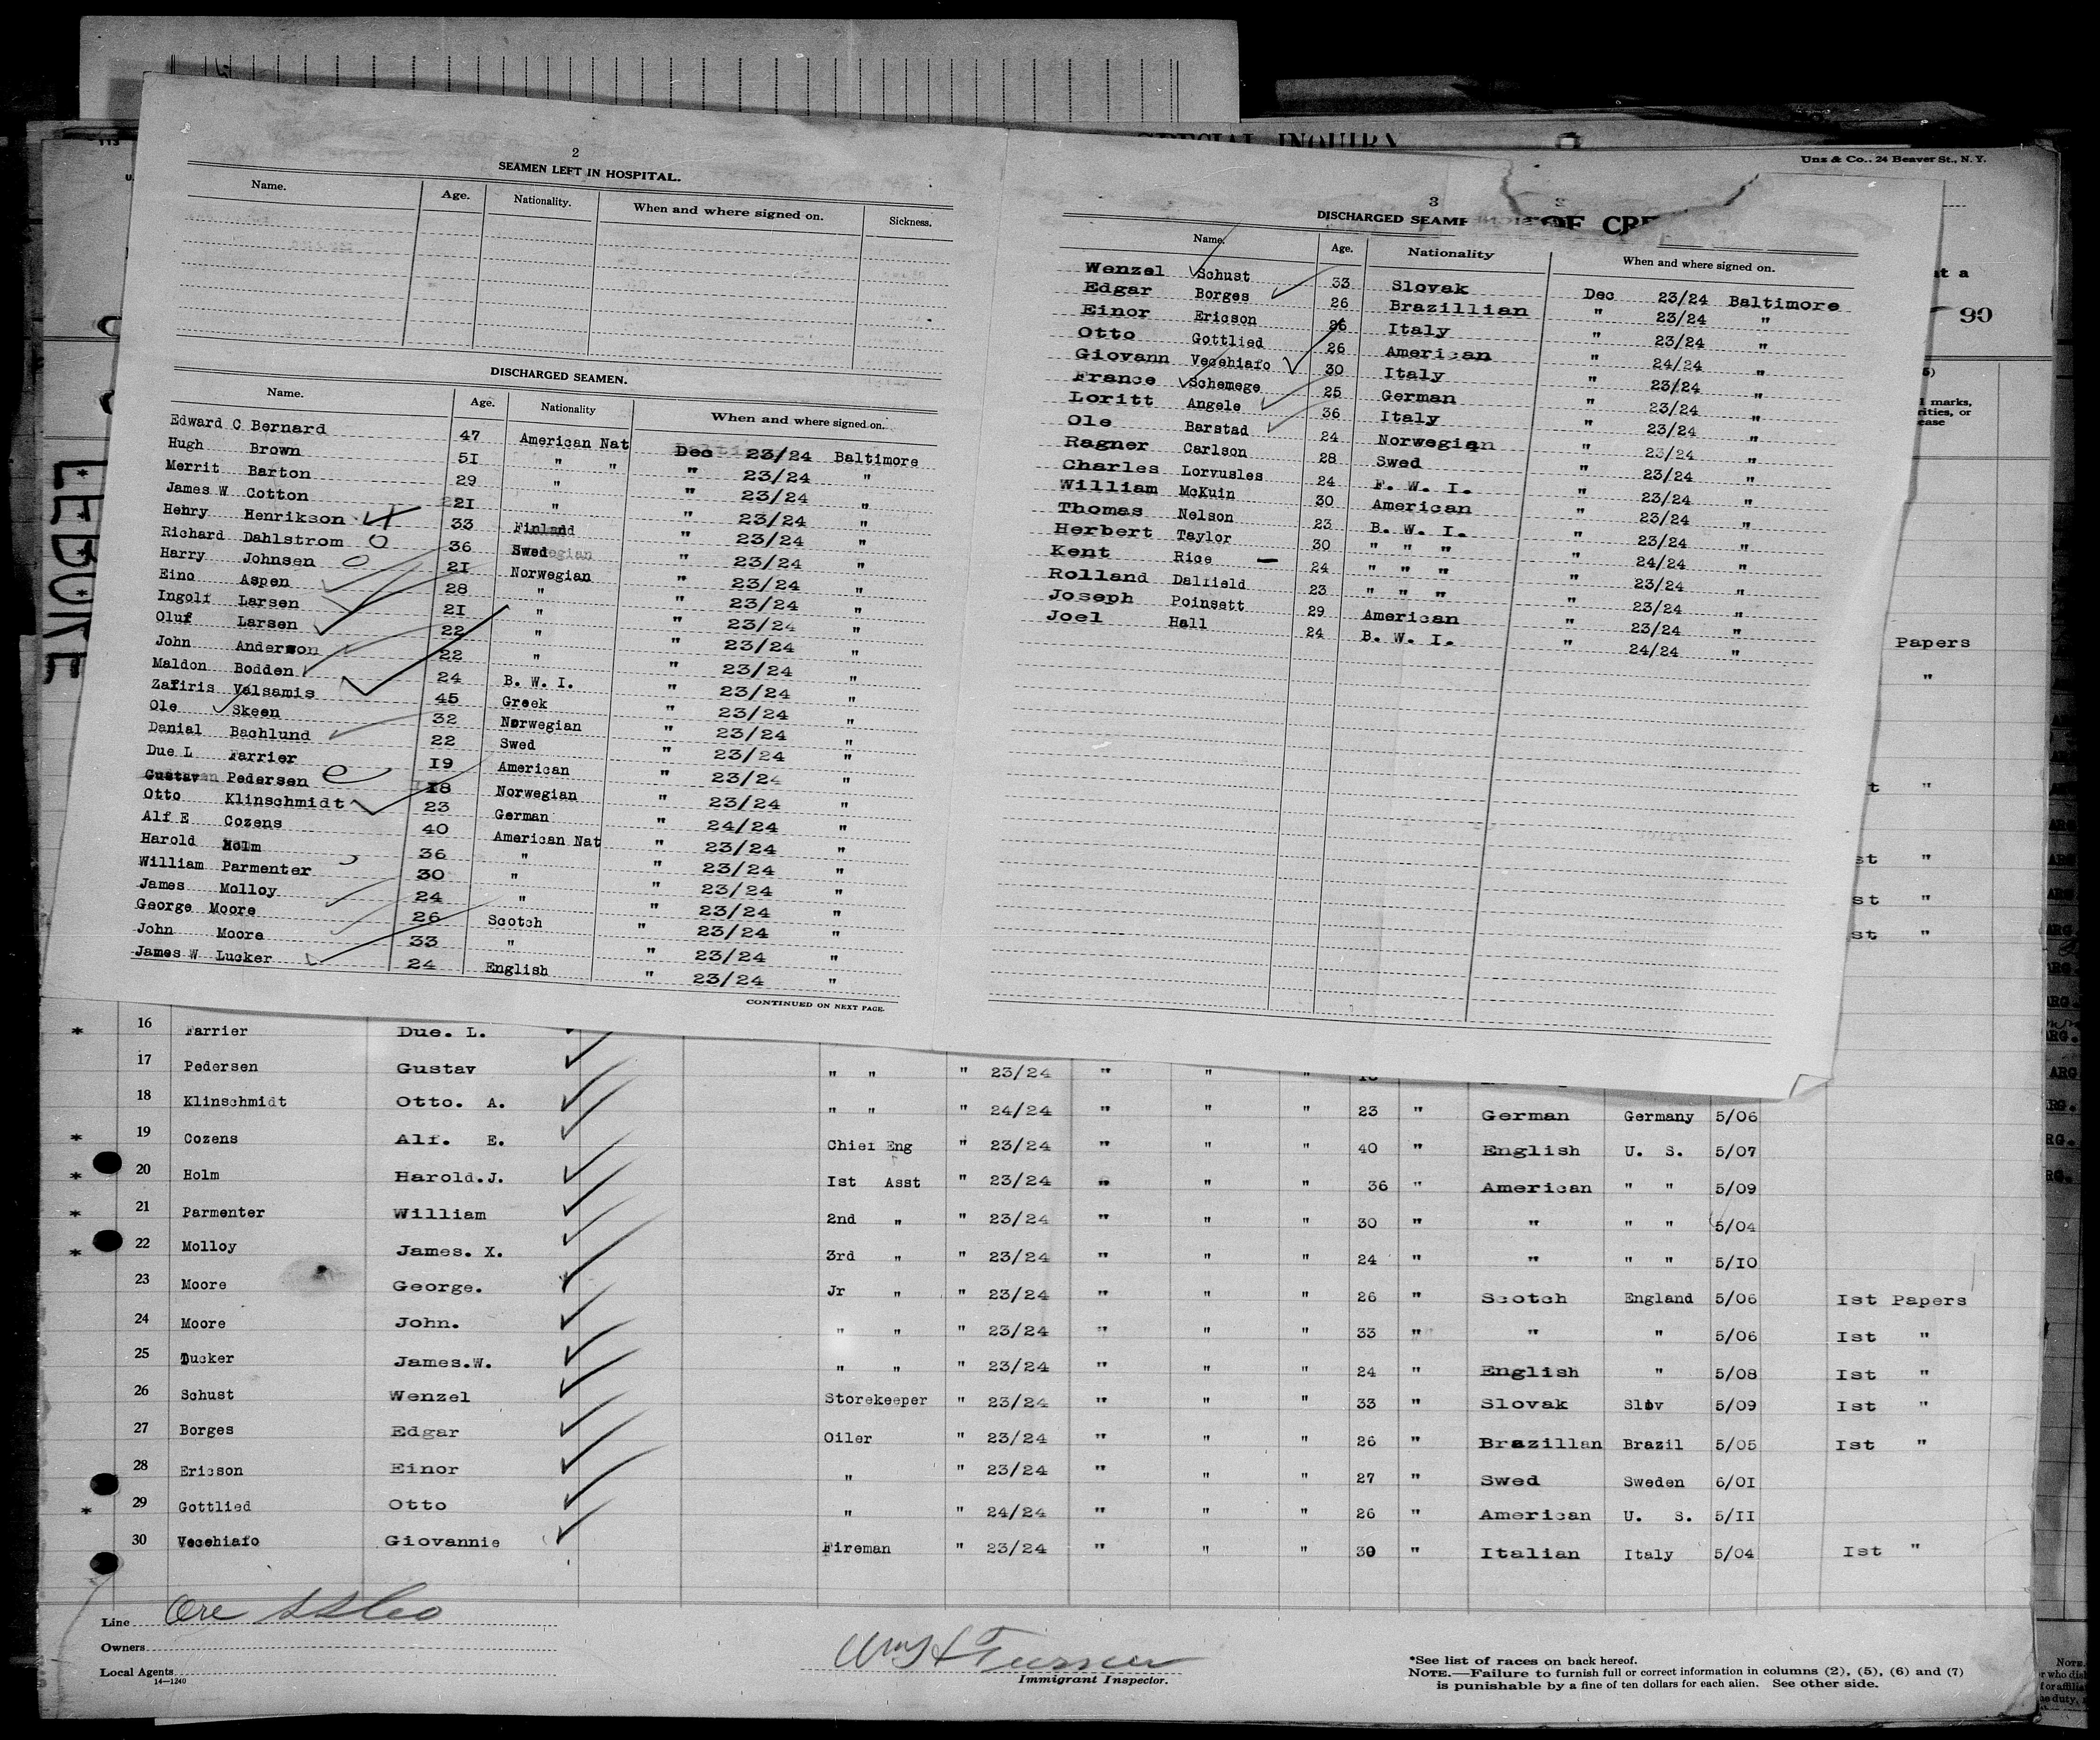 SPECIAL INQUIRY
Unz & Co., 24 Beaver St., N. Y.
2
SEAMEN LEFT IN HOSPITAL.
Name. Age. Nationality. When and where signed on. Sickness.
DISCHARGED SEAMEN.
Name. Age. Nationality When and where signed on.
Edward C Bernard 47 American Nat Dec 23/24 Baltimore
Hugh Brown 51 " " " 23/24 "
Merrit Barton 29 " " 23/24 "
James W Cotton 21 " " 23/24 "
Henry Henrikson 33 Finland " 23/24 "
Richard Dahlstrom 36 Swed " 23/24 "
Harry Johnsen 21 Norwegian " 23/24 "
Eino Aspen 28 " " 23/24 "
Ingolf Larsen 21 " " 23/24 "
Oluf Larsen 22 " " 23/24 "
John Anderson 22 " " 23/24 "
Maldon Bodden 24 B. W. I. " 23/24 "
Zafiris Valsamis 45 Greek " 23/24 "
Ole Skeen 32 Norwegian " 23/24 "
Danial Bachlund 22 Swed " 23/24 "
Due L Farrier 19 American " 23/24 "
Gustav Pedersen 18 Norwegian " 23/24 "
Otto Klinschmidt 23 German " 24/24 "
Alf E Cozens 40 American Nat " 23/24 "
Harold Holm 36 " " 23/24 "
William Parmenter 30 " " 23/24 "
James Molloy 24 " " 23/24 "
George Moore 26 Scotch " 23/24 "
John Moore 33 " " 23/24 "
James W Lucker 24 English " 23/24 "
CONTINUED ON NEXT PAGE.
3
DISCHARGED SEAME OF CRE
Name. Age. Nationality When and where signed on.
Wenzel Schust 33 Slovak Dec 23/24 Baltimore
Edgar Borges 26 Brazillian " 23/24 "
Einor Ericson 26 Italy " 23/24 "
Otto Gottlied 26 American " 24/24 "
Giovann Vecehiafo 30 Italy " 23/24 "
France Schemege 25 German " 23/24 "
Loritt Angele 36 Italy " 23/24 "
Ole Barstad 24 Norwegian " 23/24 "
Ragner Carlson 28 Swed " 23/24 "
Charles Lorvusles 24 F. W. I. " 23/24 "
William McKuin 30 American " 23/24 "
Thomas Nelson 23 B. W. I. " 23/24 "
Herbert Taylor 30 " " " " 24/24 "
Kent Rice 24 " " " " 23/24 "
Rolland Dalfield 23 " " " " 23/24 "
Joseph Poinsett 29 American " 23/24 "
Joel Hall 24 B. W. I. " 24/24 "
90
Papers
16 Farrier Due. L.
17 Pedersen Gustav " " " 23/24 " " "
18 Klinschmidt Otto. A. " " " 24/24 " " " 23 " German Germany 5/06
19 Cozens Alf. E. Chief Eng " 23/24 " " " 40 " English U. S. 5/07
20 Holm Harold.J. Ist Asst " 23/24 " " " 36 " American " " 5/09
21 Parmenter William 2nd " " 23/24 " " " 30 " " " " 5/04
22 Molloy James. X. 3rd " " 23/24 " " " 24 " " " " 5/10
23 Moore George. Jr " " 23/24 " " " 26 " Scotch England 5/06 Ist Papers
24 Moore John. " " " 23/24 " " " 33 " " " 5/06 Ist "
25 Tucker James.W. " " " 23/24 " " " 24 " English " 5/08 Ist "
26 Schust Wenzel Storekeeper " 23/24 " " " 33 " Slovak Slov 5/09 Ist "
27 Borges Edgar Oiler " 23/24 " " " 26 " Brazillan Brazil 5/05 Ist "
28 Ericson Einor " " 23/24 " " " 27 " Swed Sweden 6/01
29 Gottlied Otto " " 24/24 " " " 26 " American U. S. 5/11
30 Vecehiafo Giovannie Fireman " 23/24 " " " 30 " Italian Italy 5/04 Ist "
Line Ore SS Co
Owners
Local Agents
14—1240
Wm H Turner
Immigrant Inspector.
*See list of races on back hereof.
NOTE.—Failure to furnish full or correct information in columns (2), (5), (6) and (7)
is punishable by a fine of ten dollars for each alien. See other side.